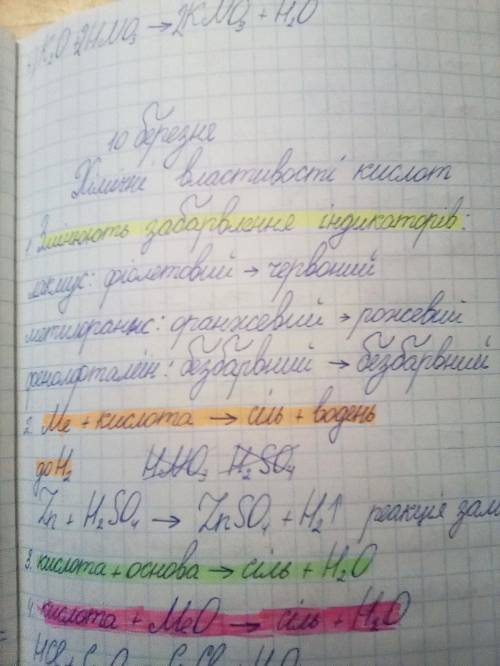 K₂O + 2HNO₃ → 2KNO₃ + H₂O
10 березня
Хімічні властивості кислот
1. Змінюють забарвлення індикаторів:
лакмус: фіолетовий → червоний
метилоранж: оранжевий → рожевий
фенолфталеїн: безбарвний → безбарвний
2. Ме + кислота → сіль + водень
до H₂ HNO₃ H₂SO₄
Zn + H₂SO₄ → ZnSO₄ + H₂↑ реакція
3. кислота + основа → сіль + H₂O
4. кислота + MeO → сіль + H₂O